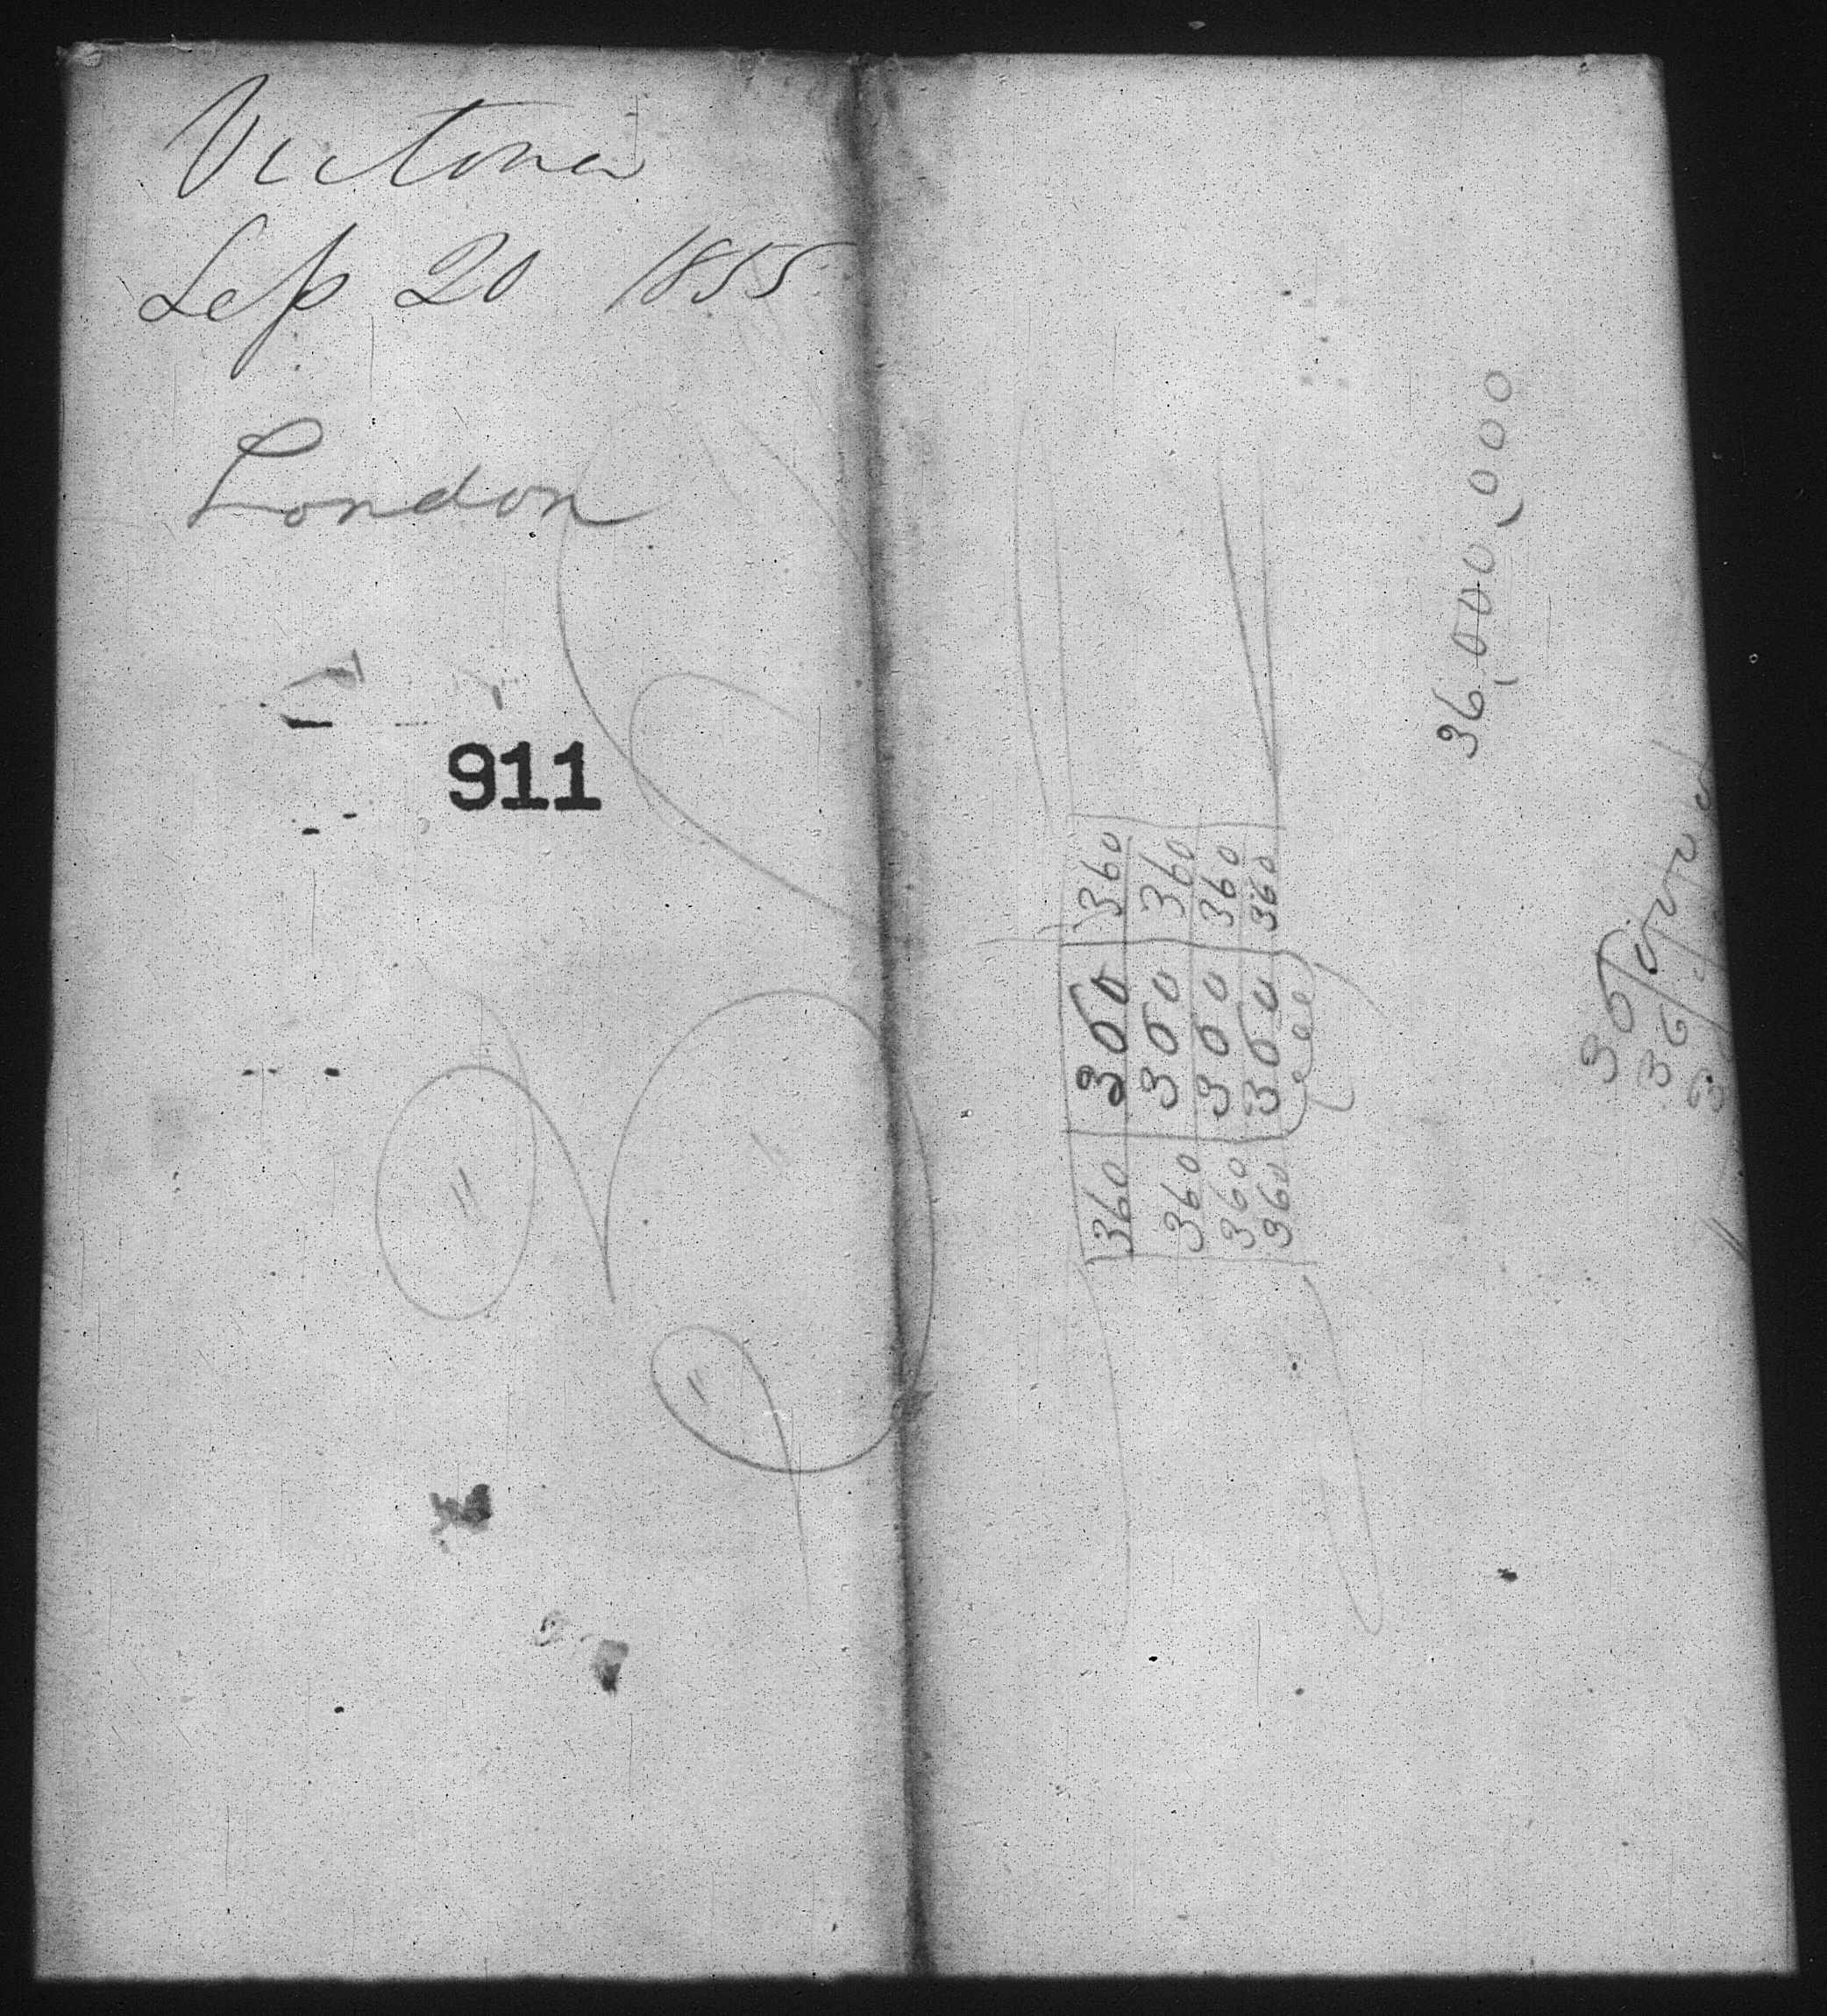 Victoria
Sep 20 1855
London
911
360 360 360
360 360 360
360 300 360
360 360 360
36,000,000